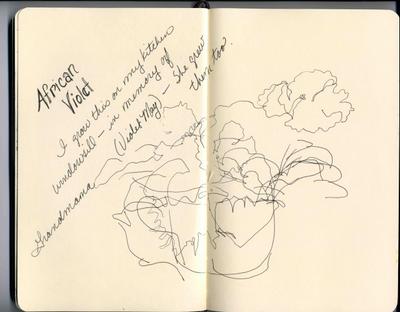 African
Violet
I grow this on my kitchen
windowsill - in memory of
Grandmama (Violet May) - She grew
them too.